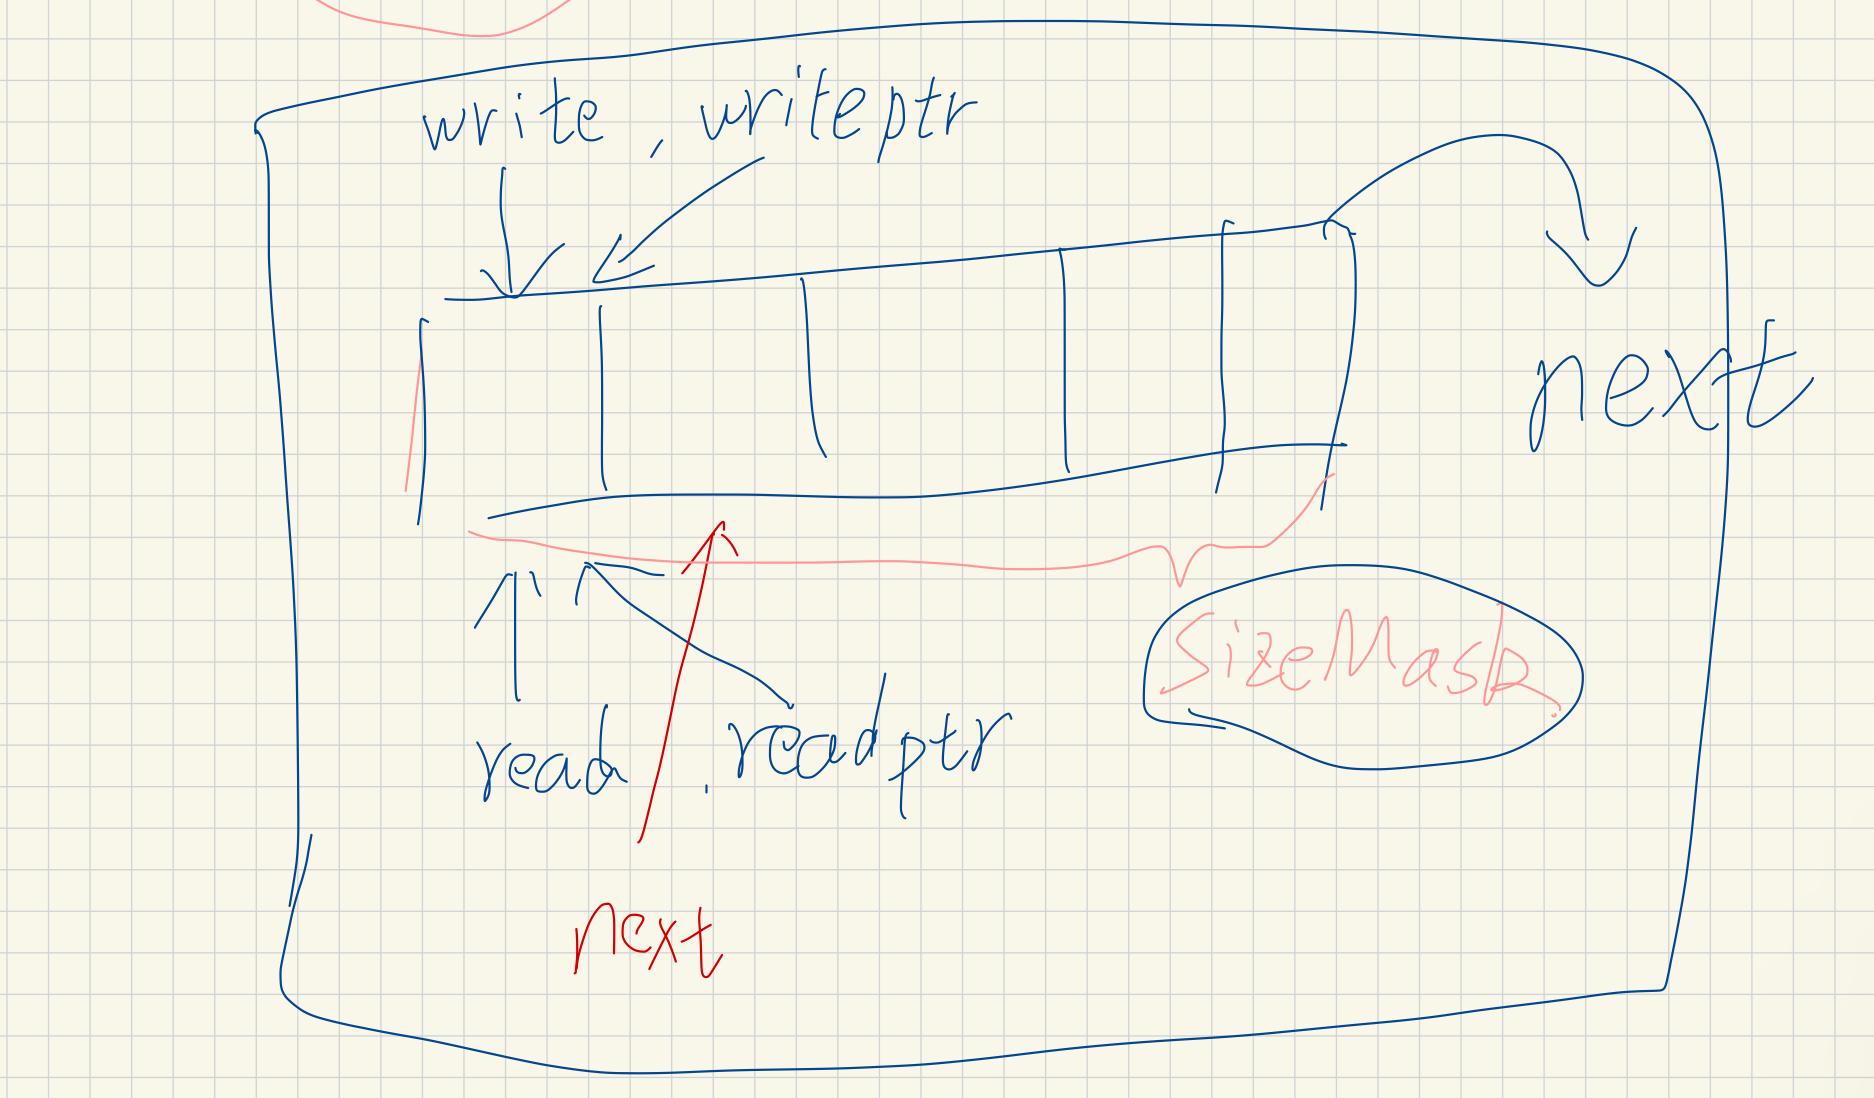 write, writeptr
next
SizeMask
read, readptr
next